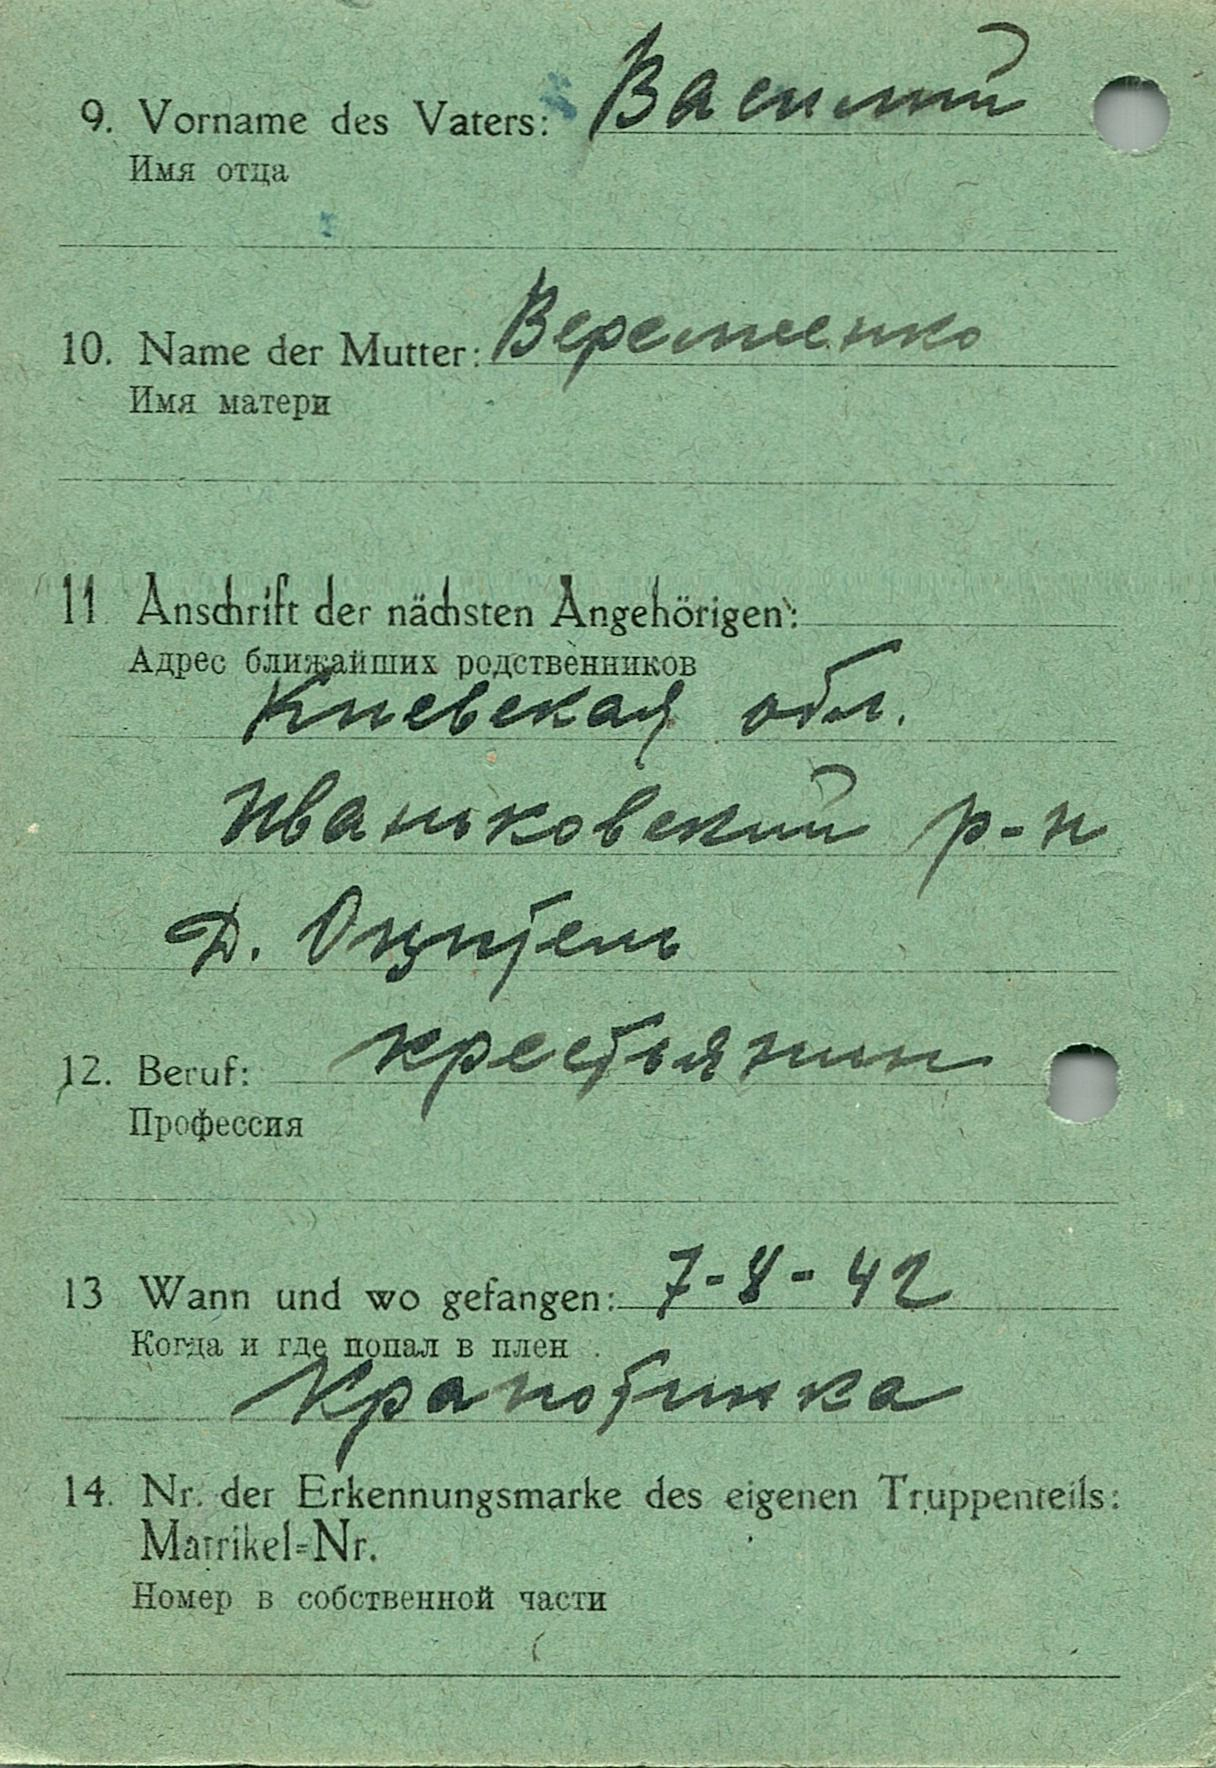 9. Vorname des Vaters: Василий
Имя отца
10. Name der Mutter: Веремеенко
Имя матери
11 Anschrift der nächsten Angehörigen:
Адрес ближайших родственников
Киевская обл.
Иваньковский р-н
Д.
12. Beruf: крестьянин
Профессия
13 Wann und wo gefangen: 7-8-42
Когда и где попал в плен
Крапотинка
14. Nr. der Erkennungsmarke des eigenen Truppenteils:
Matrikel=Nr.
Номер в собственной части